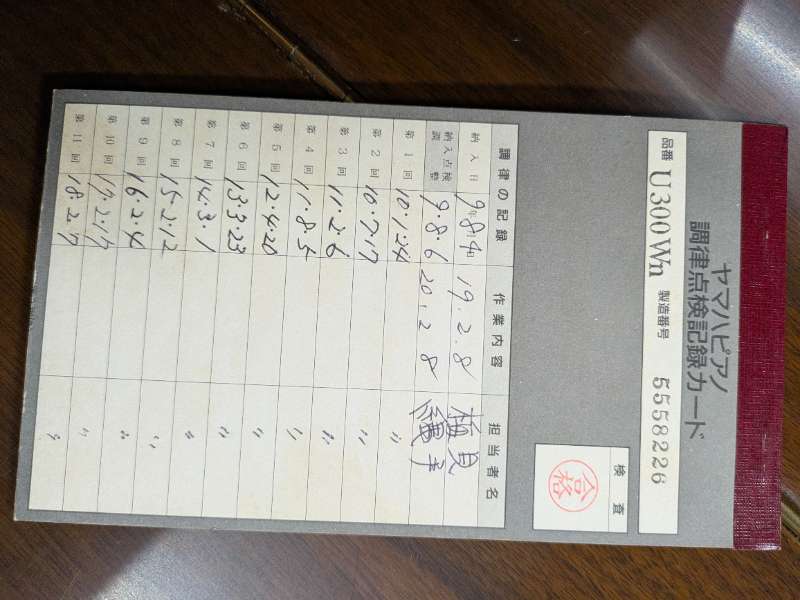 ヤマハピアノ
調律点検記録カード
品番 U300Wn 製造番号 5558226
検査
合格
調律の記録 作業内容 担当者名
納入日 9年8月4日 19.2.8
納入点検調整 9.8.6 20.2.8
第1回 10.1.24 〃
第2回 10.7.17 〃
第3回 11.2.6 〃
第4回 11.8.5 〃
第5回 12.4.20 〃
第6回 13.3.23 〃
第7回 14.3.1 〃
第8回 15.2.12 〃
第9回 16.2.4 〃
第10回 17.2.17 〃
第11回 18.2.7 〃